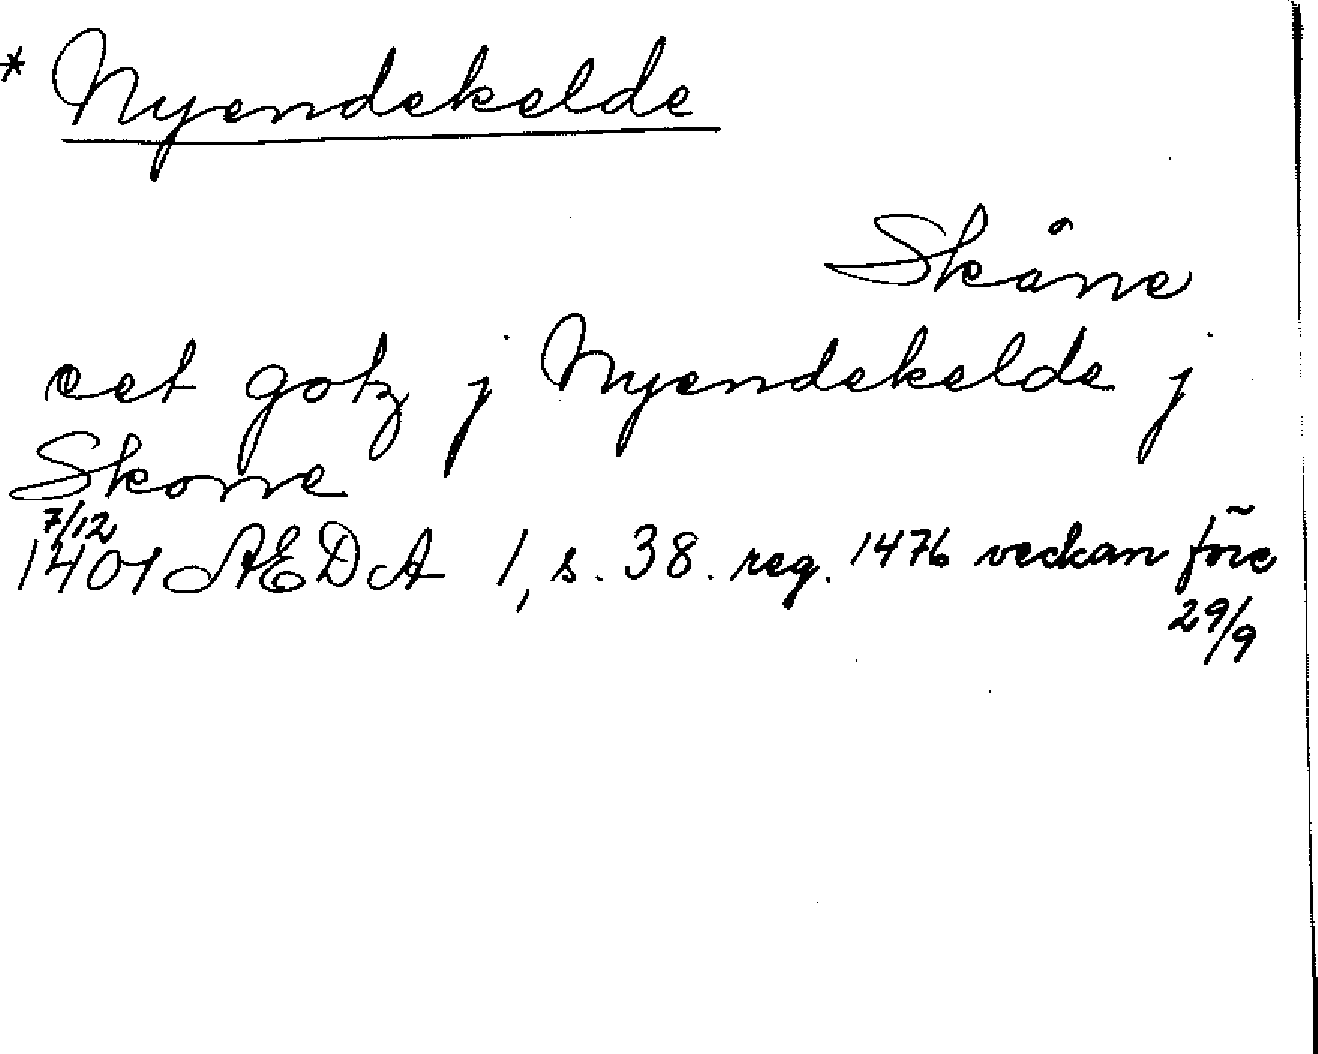 * Nyendekelde
Skåne
eet gotz j Nyendekelde j
Skone
7/12
1401 AEDA 1, s. 38. reg. 1476 veckan före
29/9